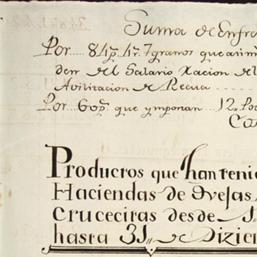 Suma de Enfre
Por 84 p. 4 t. 7 granos que
den el Salario Racion el
Avilitacion de Recua
Por 60 p. que ymportan 12. Po
Ca
Productos que han tenie
Haciendas de Ovejas
Crucecitas desde
hasta 31,, de Dizien